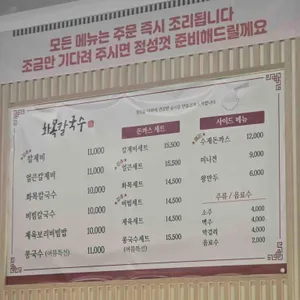 모든 메뉴는 주문 즉시 조리됩니다
조금만 기다려 주시면 정성껏 준비해드릴께요
화목칼국수
칼제비 11,000
얼큰칼제비 11,000
화목칼국수 10,000
비빔칼국수 10,000
제육보리비빔밥 10,000
콩국수 (여름특선) 11,000
돈까스 세트
칼제비세트 15,500
얼큰세트 15,500
화목세트 14,500
비빔세트 14,500
제육세트 14,500
콩국수세트 15,500
(여름특선)
사이드 메뉴
수제돈까스 12,000
미니전 9,000
왕만두 6,000
주류 / 음료수
소주 4,000
맥주 4,000
막걸리 4,000
음료수 2,000